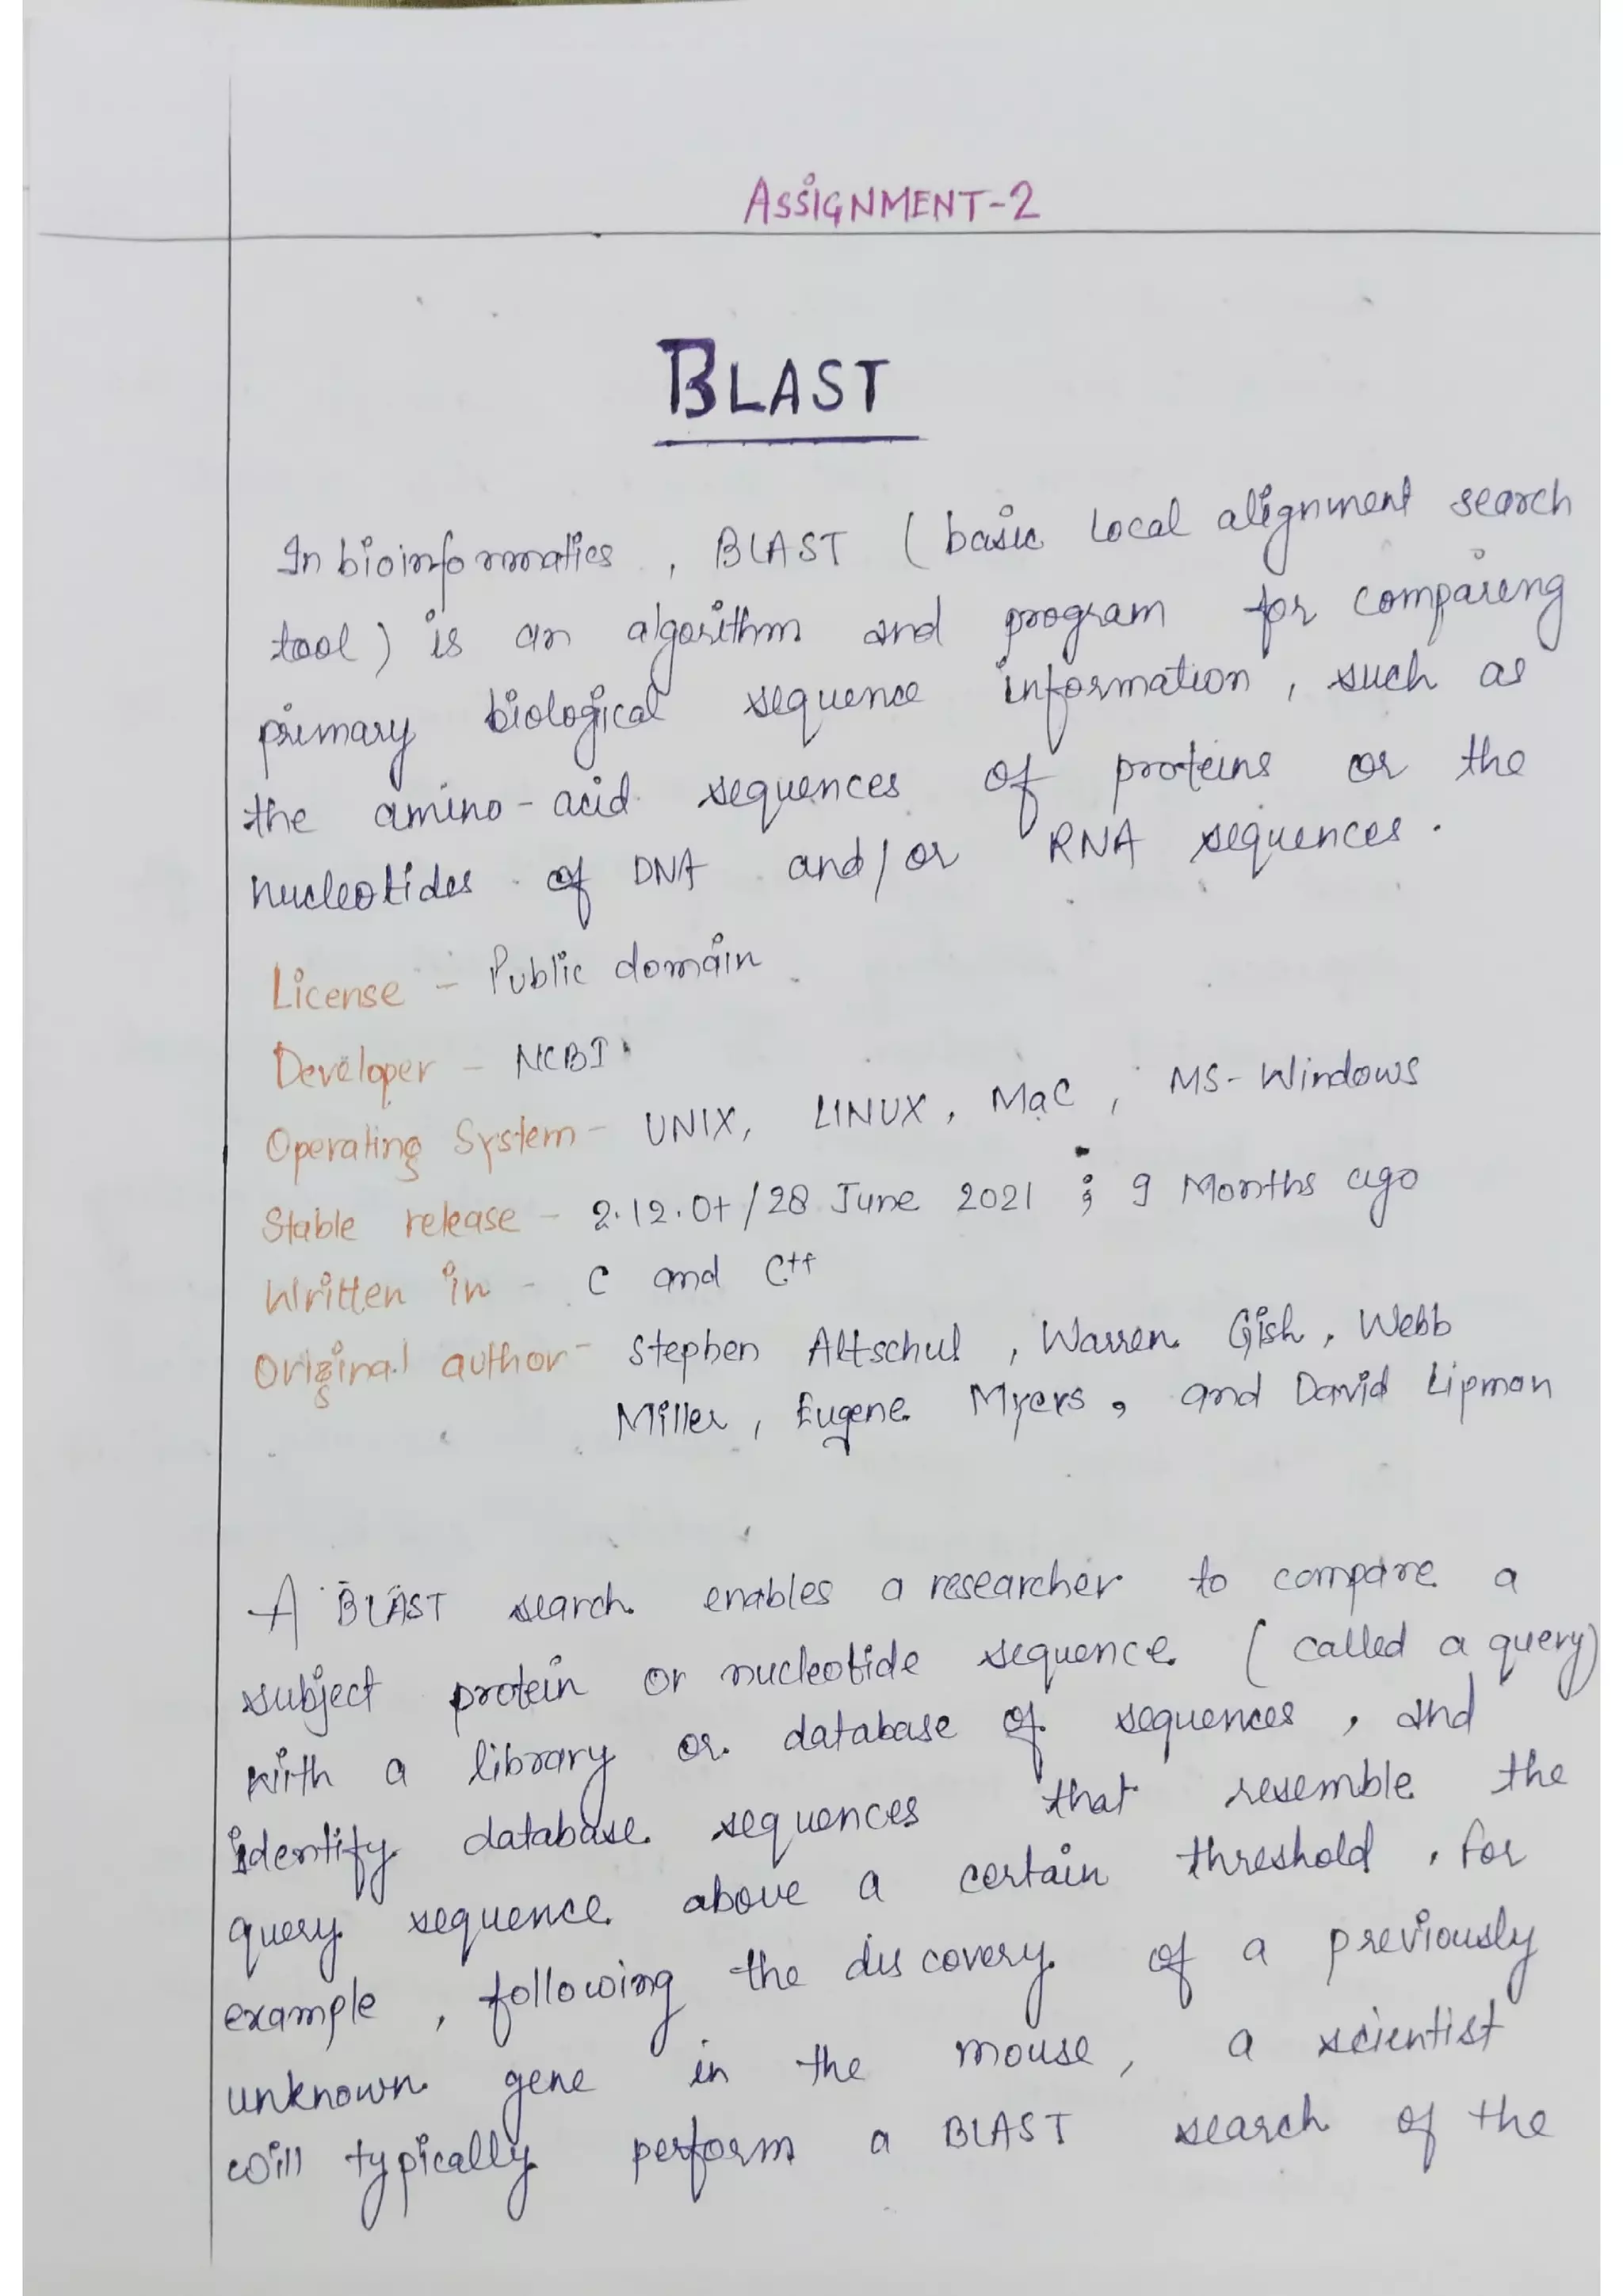 ASSIGNMENT-2
BLAST
In bioinformatics , BLAST ( basic local alignment search
tool ) is an algorithm and program for comparing
primary biological sequence information , such as
the amino - acid sequences of proteins or the
nucleotides of DNA and / or RNA sequences .
License - Public domain
Developer - NCBI
Operating System - UNIX, LINUX , Mac , MS - Windows
Stable release - 2.12.0+ / 28 June 2021 ; 9 Months ago
Written in - C and C++
Original author - Stephen Altschul , Warren Gish , Webb
Miller , Eugene Myers , and David Lipman
A BLAST search enables a researcher to compare a
subject protein or nucleotide sequence ( called a query)
with a library or database of sequences , and
identify database sequences that resemble the
query sequence above a certain threshold , For
example , following the discovery of a previously
unknown gene in the mouse , a scientist
will typically perform a BLAST search of the